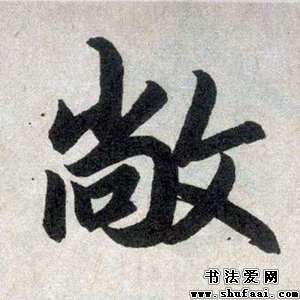 敞
书法爱网
www.shufaai.com